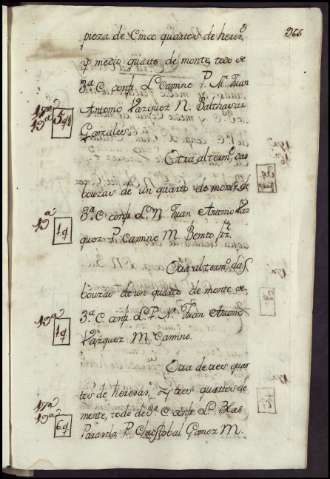 pieza de Cinco quartos de heren.ˢ 265
y medio quarto de monte, todo de
3.ª C. confª L. Camino P. N. Juan
Antonio Vazquez N. Balthazar
Gonzalez
5 q
Otra al term.º das
bouzas de un quarto de monte de
3.ª C. confª L. N. Juan Antonio
13.ª 1 q
quez P. Camino M. Benito
Otra al term.º das
bouzas de un quarto de monte de
3.ª C. confª L. P. N. Juan Antonio
13.ª 1 q
Vazquez M. Camino
Otra de tres quar
tos de y tres quartos de
17.ª
13.ª 6 q
monte, todo de 3.ª C. confª L. Blas
P. Christobal Gomez M.